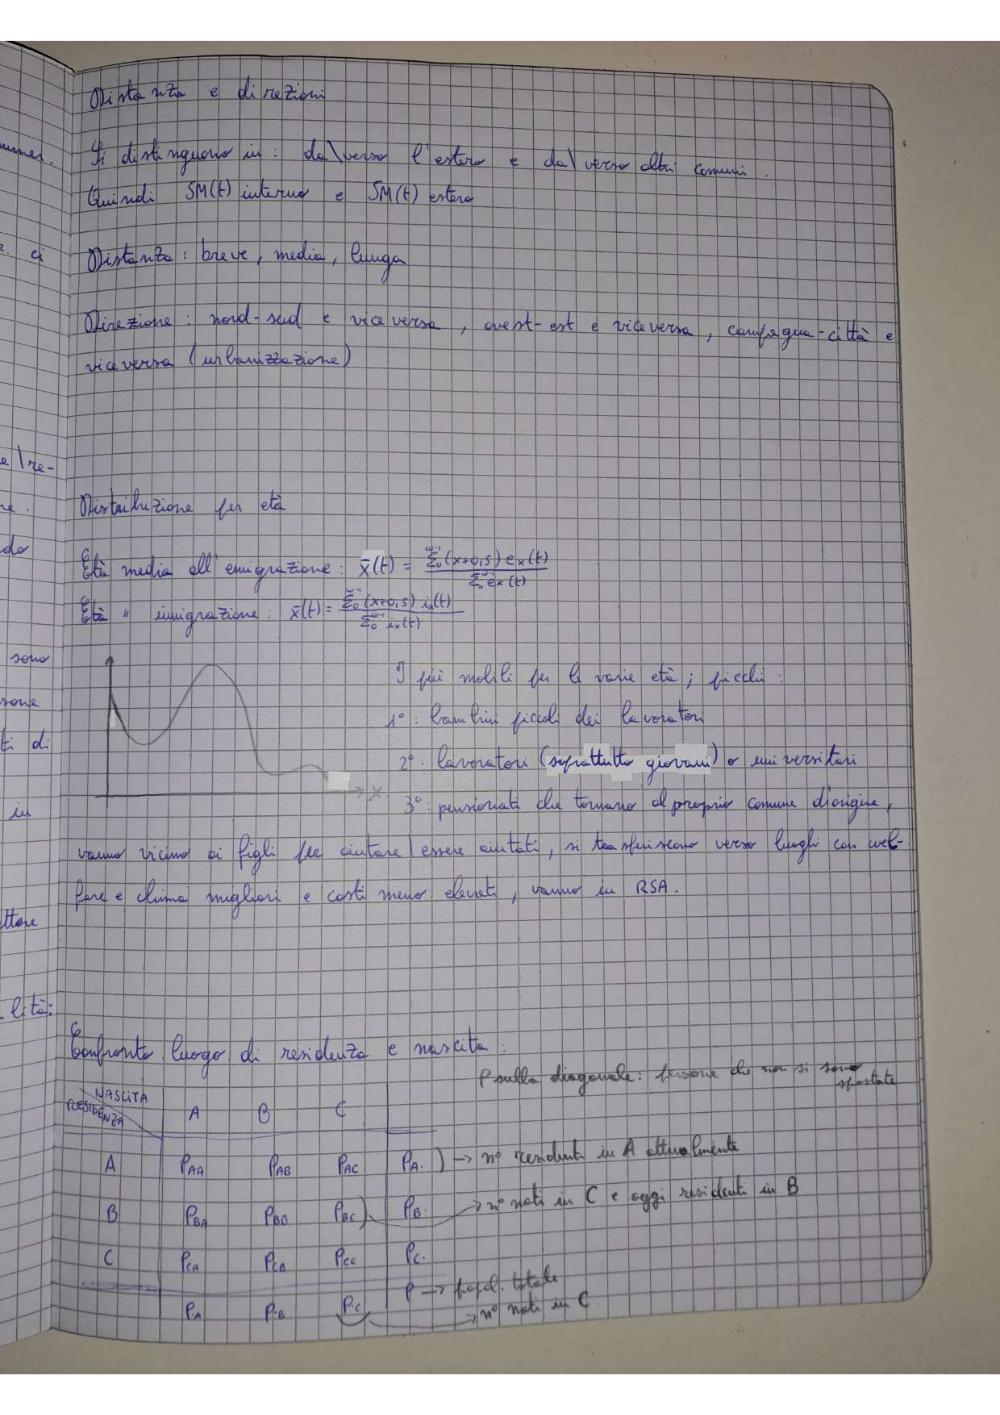 Distanza e direzioni
Si distinguono in: da\verso l'estero e da\verso altri comuni.
Quindi SM(t) interno e SM(t) estero
ci
Distanza: breve, media, lunga
Direzione: nord-sud e viceversa, ovest-est e viceversa, campagna-città e
viceversa (urbanizzazione)
e\re-
Distribuzione per età
Età media all'emigrazione: x̄(t) = Σ₀^ω⁻¹ (x+0,5) eₓ(t) / Σ₀^ω⁻¹ eₓ(t)
Età " immigrazione: x̄(t) = Σ₀^ω⁻¹ (x+0,5) iₓ(t) / Σ₀^ω⁻¹ iₓ(t)
sono
I più mobili per le varie età; picchi:
1°: bambini piccoli dei lavoratori
ti di
2°: lavoratori (soprattutto giovani) o universitari
x
3°: pensionati che tornano al proprio comune d'origine,
in
vanno vicino ai figli per aiutare\essere aiutati, si trasferiscono verso luoghi con wel-
fare e clima migliori e costi meno elevati, vanno in RSA.
lità:
Confronto luogo di residenza e nascita:
P sulla diagonale: persone che non si sono
spostate
NASCITA
RESIDENZA A B C
A P_AA P_AB P_AC P_A. ) → n° residenti in A attualmente
B P_BA P_BB P_BC ) P_B. → n° nati in C e oggi residenti in B
C P_CA P_CB P_CC P_C.
P.A P.B P.C P → popol. totale
→ n° nati in C